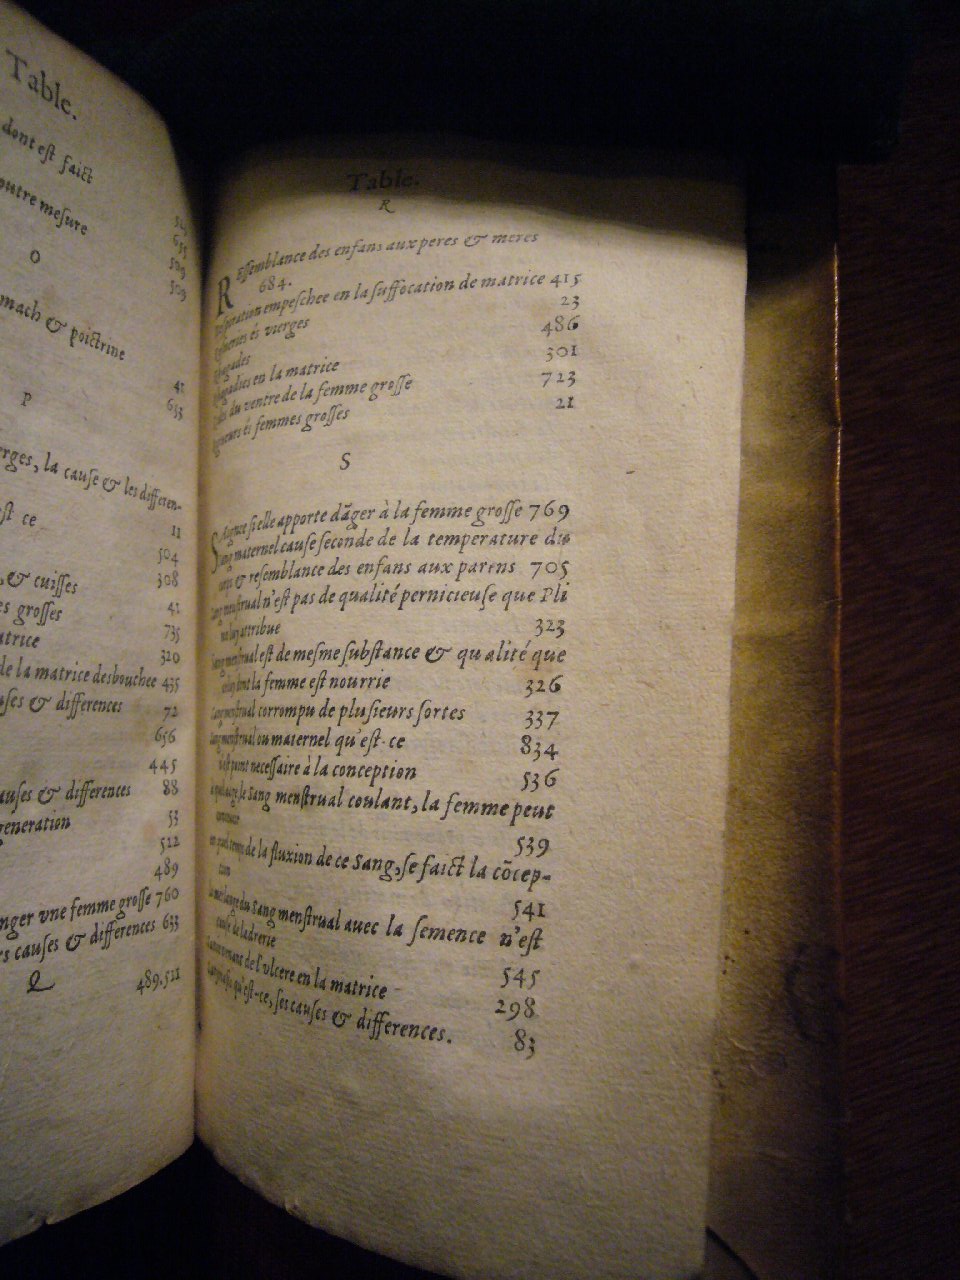 Table.
dont est faict
outre mesure
655
509
509
O
mach & poictrine
41
P
633
erges, la cause & les differen-
11
est ce
504
, & cuisses 308
es grosses 41
atrice 735
320
de la matrice desbouchee 435
uses & differences 72
656
445
auses & differences 88
generation 53
522
489
anger vne femme grosse 760
rs causes & differences 633
Q
489.511
Table.
R
REssemblance des enfans aux peres & meres
684.
Respiration empeschee en la suffocation de matrice 415
és vierges 23
486
en la matrice 301
du ventre de la femme grosse 723
és femmes grosses 21
S
SAignee si elle apporte dãger à la femme grosse 769
Sang maternel cause seconde de la temperature du
corps & resemblance des enfans aux parens 705
Sang menstrual n'est pas de qualité pernicieuse que Pli
ne luy attribue 323
Sang menstrual est de mesme substance & qualité que
celuy dont la femme est nourrie 326
Sang menstrual corrompu de plusieurs sortes 337
Sang menstrual ou maternel qu'est-ce 834
n'est point necessaire à la conception 536
le Sang menstrual coulant, la femme peut
539
en quel temps de la fluxion de ce Sang, se faict la cõcep-
tion 541
le meslange du Sang menstrual auec la semence n'est
cause de ladrerie 545
de l'vlcere en la matrice 298
qu'est-ce, ses causes & differences. 83